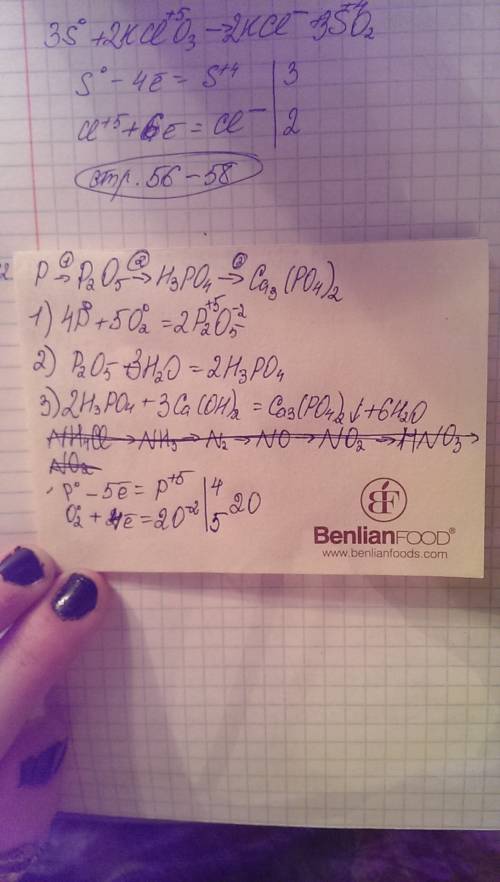 3S⁰ + 2KCl⁺⁵O₃ → 2KCl⁻ + 3S⁺⁴O₂
S⁰ - 4ē = S⁺⁴ | 3
Cl⁺⁵ + 6ē = Cl⁻ | 2
стр. 56-58
P →① P₂O₅ →② H₃PO₄ →③ Ca₃(PO₄)₂
1) 4P⁰ + 5O₂⁰ = 2P₂⁺⁵O₅⁻²
2) P₂O₅ + 3H₂O = 2H₃PO₄
3) 2H₃PO₄ + 3Ca(OH)₂ = Ca₃(PO₄)₂↓ + 6H₂O
NH₄Cl → NH₃ → N₂ → NO → NO₂ → HNO₃ →
NO₂
P⁰ - 5ē = P⁺⁵ | 4
O₂⁰ + 4ē = 2O⁻² | 5 20
BF
BenlianFOOD®
www.benlianfoods.com